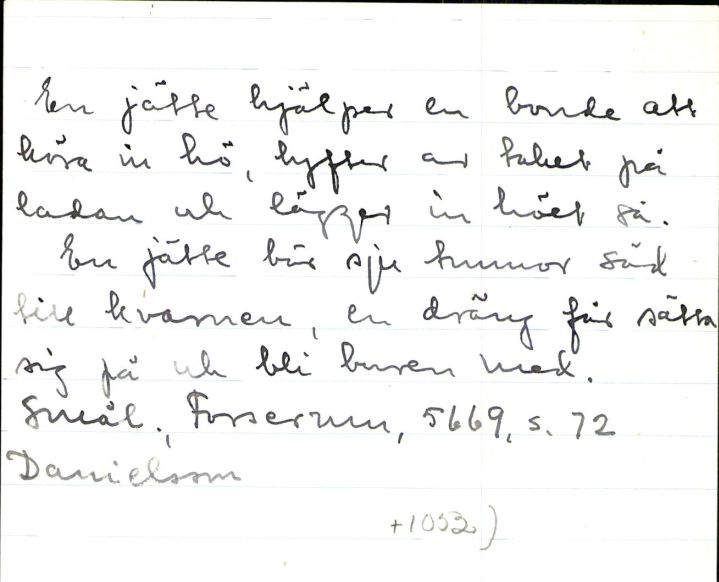 En jätte hjälper en bonde att
köra in hö, lyfter av taket på
ladan och lägger in höet så.
En jätte bär sju tunnor säd
till kvarnen, en dräng får sätta
sig på och bli buren med.
Smål., Forserum, 5669, s. 72
Danielsson
+1052)